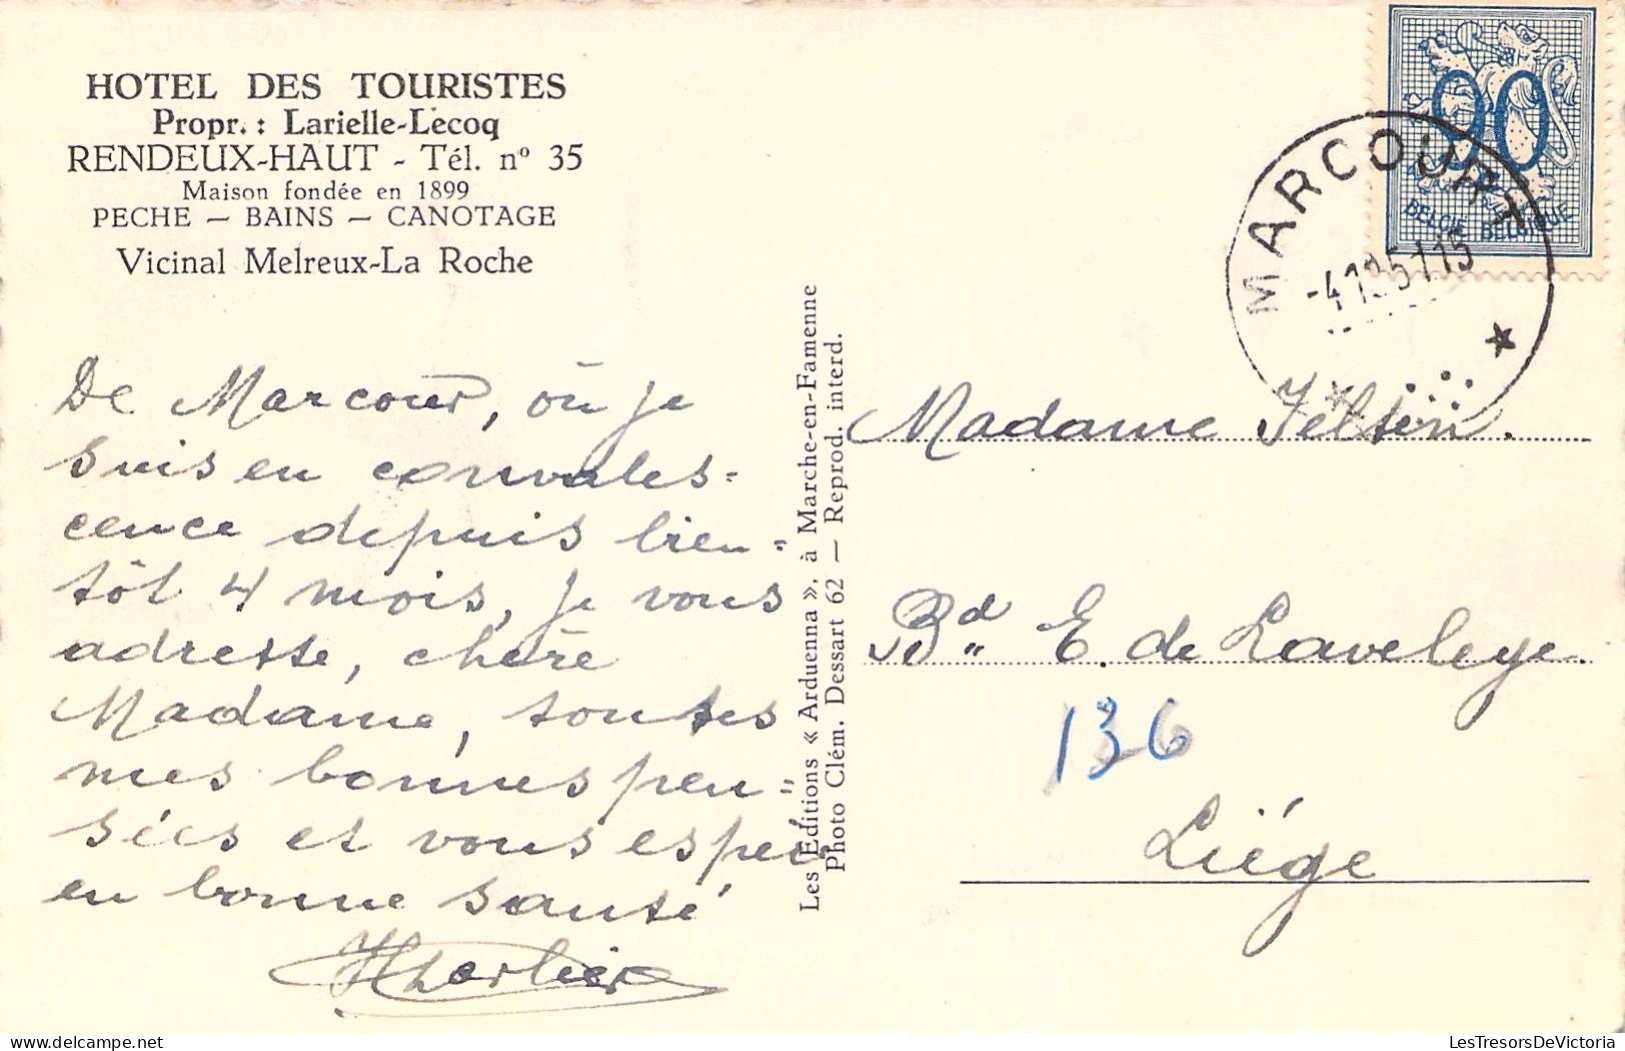 HOTEL DES TOURISTES
Propr. : Larielle-Lecoq
RENDEUX-HAUT - Tél. nº 35
Maison fondée en 1899
PECHE — BAINS — CANOTAGE
Vicinal Melreux-La Roche
De Marcour, où je
suis en convales=
cence depuis bien=
tôt 4 mois, je vous
adresse, chère
Madame, toutes
mes bonnes pen=
sées et vous
en bonne santé
Les Editions « Arduenna », à Marche-en-Famenne
Photo Clém. Dessart 62 — Reprod. interd.
90
BELGIE BELGIQUE
MARCOURT
Madame
Bd E. de Laveleye.
136
Liége
LesTresorsDeVictoria
www.delcampe.net